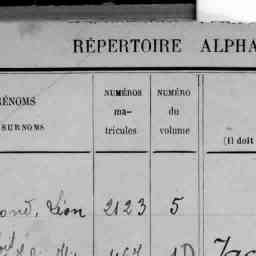 RÉPERTOIRE ALPHA
RÉNOMS
SURNOMS
NUMÉROS
ma-
tricules
NUMÉRO
du
volume
(Il doit
ond, Léon 2123 5